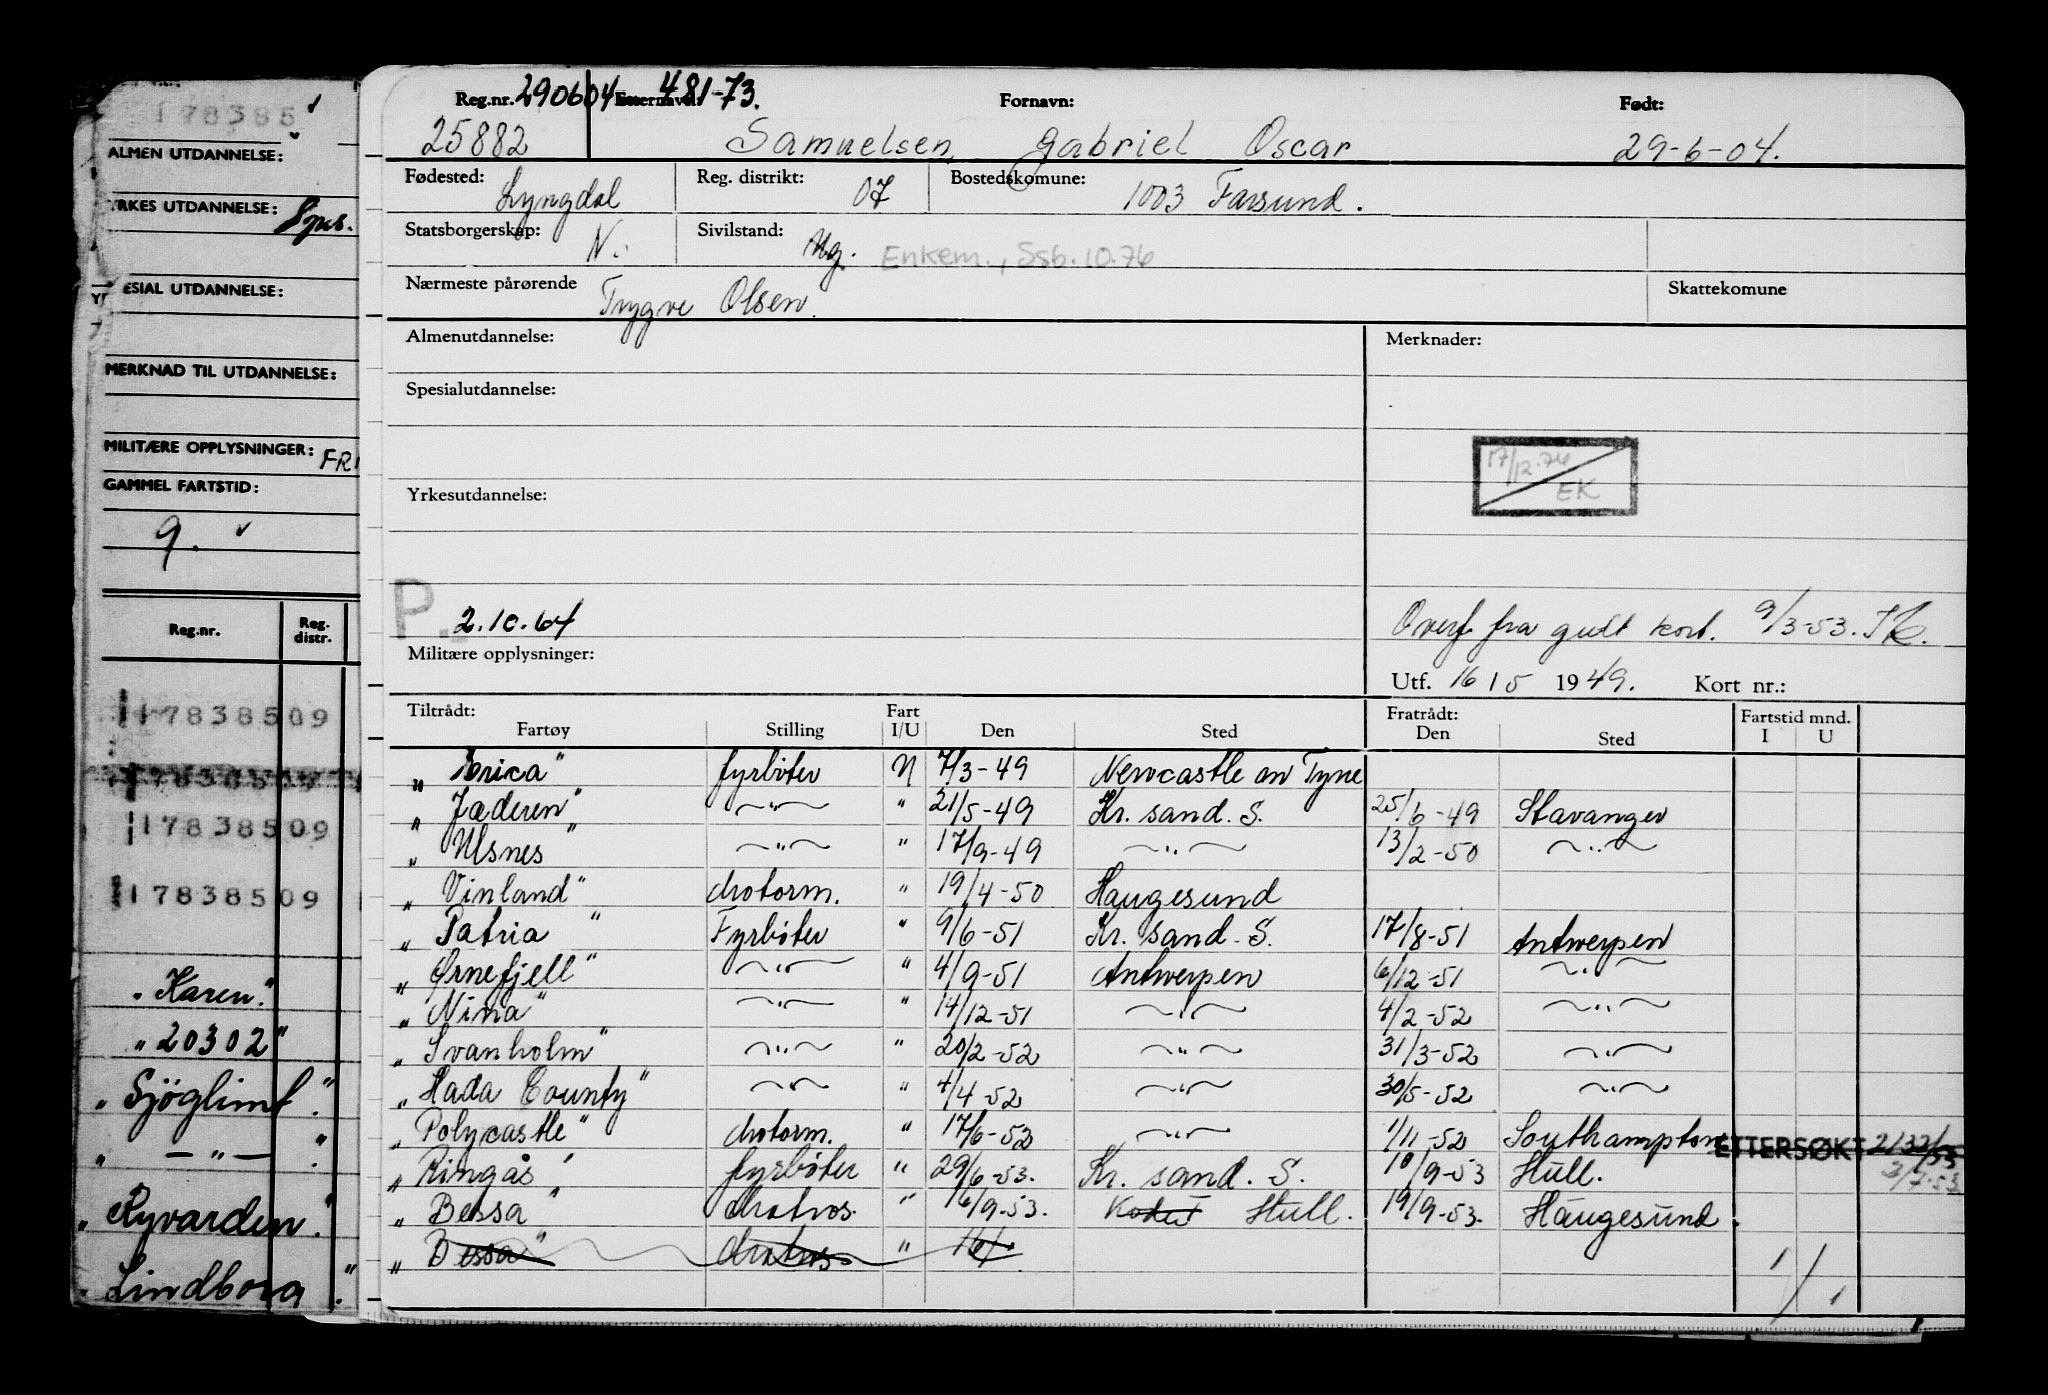 178385
ALMEN UTDANNELSE:
YRKES UTDANNELSE:
SPESIAL UTDANNELSE:
MERKNAD TIL UTDANNELSE:
MILITÆRE OPPLYSNINGER: FRI
GAMMEL FARTSTID:
9.
Reg.nr. Reg. distr.
178385 09
178385 09
178385 09
178385 09
"Karen"
"20302"
"Sjöglimt"
" — " — "
"Ryvarden"
"Lindborg"
Reg.nr. 290604 Etternavn: 481-73. Fornavn: Født:
25882 Samuelsen Gabriel Oscar 29-6-04.
Fødested: Lyngdal Reg. distrikt: 07 Bostedskomune: 1003 Farsund.
Statsborgerskap: N. Sivilstand: Ug. Enkem., Ssb. 10.76
Nærmeste pårørende Trygve Olsen. Skattekomune
Almenutdannelse: Merknader:
Spesialutdannelse:
17/12-76 EK
Yrkesutdannelse:
P. 2.10.64 Overf fra gult kort. 9/3-53.
Militære opplysninger:
Utf. 16 / 5 1949. Kort nr.:
Tiltrådt: Fart Fratrådt: Fartstid mnd.
Fartøy Stilling I/U Den Sted Den Sted I U
"Brica" fyrböter N 7/3-49 Newcastle on Tyne
"Jæderen" — " — " 21/5-49 Kr. sand. S. 25/6-49 Stavanger
"Ulsnes" — " — " 17/9-49 — " — 13/2-50 — " —
"Vinland" Motorm. " 19/4-50 Haugesund
"Patria" Fyrböter " 9/6-51 Kr. sand. S. 17/8-51 Antwerpen
"Ørnefjell" — " — " 4/9-51 Antwerpen 6/12-51 — " —
"Nina" — " — " 14/12-51 — " — 4/2-52 — " —
"Svanholm" — " — " 20/2-52 — " — 31/3-52 — " —
"Hada County" — " — " 4/4-52 — " — 30/5-52 — " —
"Polycastle" Motorm. " 17/6-52 — " — 1/11-52 Southampton ETTERSØKT 3/7-53
"Ringås" fyrböter " 29/6-53. Kr. sand. S. 10/9-53 Hull.
"Bessa" Matros. " 16/9-53. Hull. 19/9-53. Haugesund.
"Bessa" Matros " 16/
1 / 1